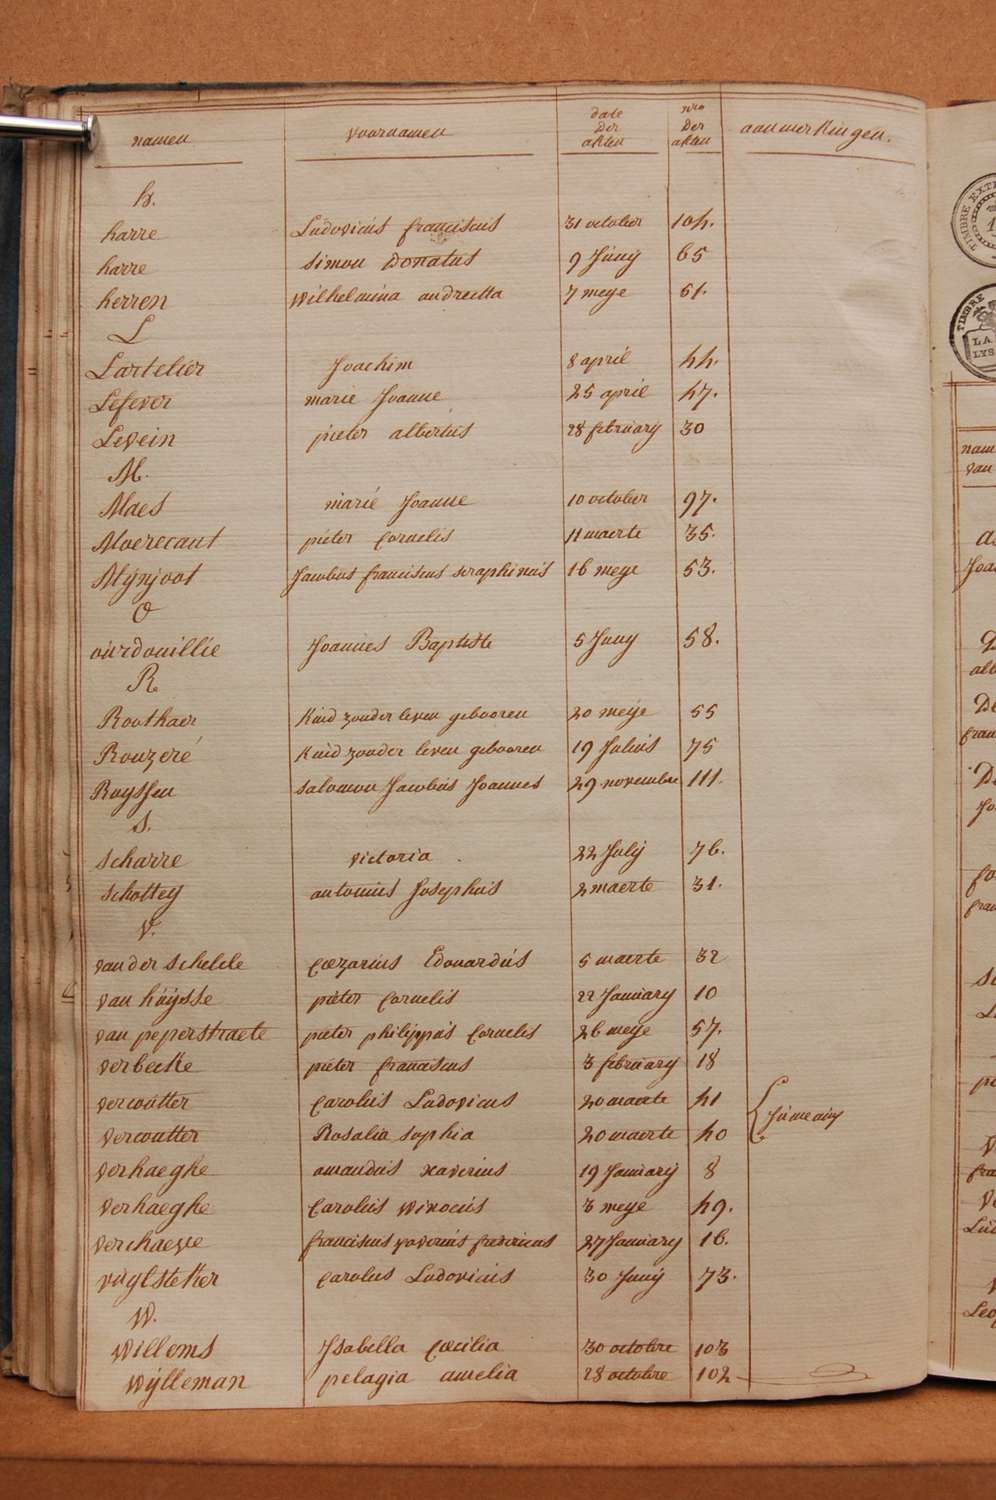 namen voornamen date der akten nro der akten aanmerkingen.
h.
harre Ludovicus franciscus 31 october 104.
harre simon Donatus 9 Juny 65
herren Wilhelmina andrietta 7 meye 51.
L
Lartelier Joachim 8 april 44.
Lefever marie Joanne 25 april 47.
Levein pieter albertus 28 february 30
M.
Maes marie Joanne 10 october 97.
Moerecant pieter Cornelis 11 maerte 35.
Mynjoot Jacobus franciscus seraphinus 16 meye 53.
O
ourdouillie Joannes Baptiste 5 Juny 58.
R
Roothaer Kind zonder leven gebooren 20 meye 55
Rouzeré Kind zonder leven gebooren 19 Julius 75
Ruyssen salomon Jacobus Joannes 29 novembre 111.
S.
scharre victoria 22 July 76.
schottey antonius Josephus 2 maerte 31.
V.
van der schelde Cæzarius Edouardus 5 maerte 32
van huysse pieter Cornelis 22 January 10
van peperstraete pieter philippus Cornelis 26 meye 57.
verbecke pieter franciscus 3 february 18
vercoutter Carolus Ludovicus 20 maerte 41
Vercoutter Rosalia sophia 20 maerte 40
verhaeghe amandus xaverius 19 January 8
verhaeghe Carolus winocus 3 meye 49.
verhaeve franciscus xaverius fredericus 27 January 16.
vuylsteker Carolus Ludovicus 30 Juny 73.
W.
Willems Isabella Cæcilia 30 octobre 103
Wylleman pelagia amelia 28 octobre 102
TIMBRE
TIMBRE
LA
LYS
van